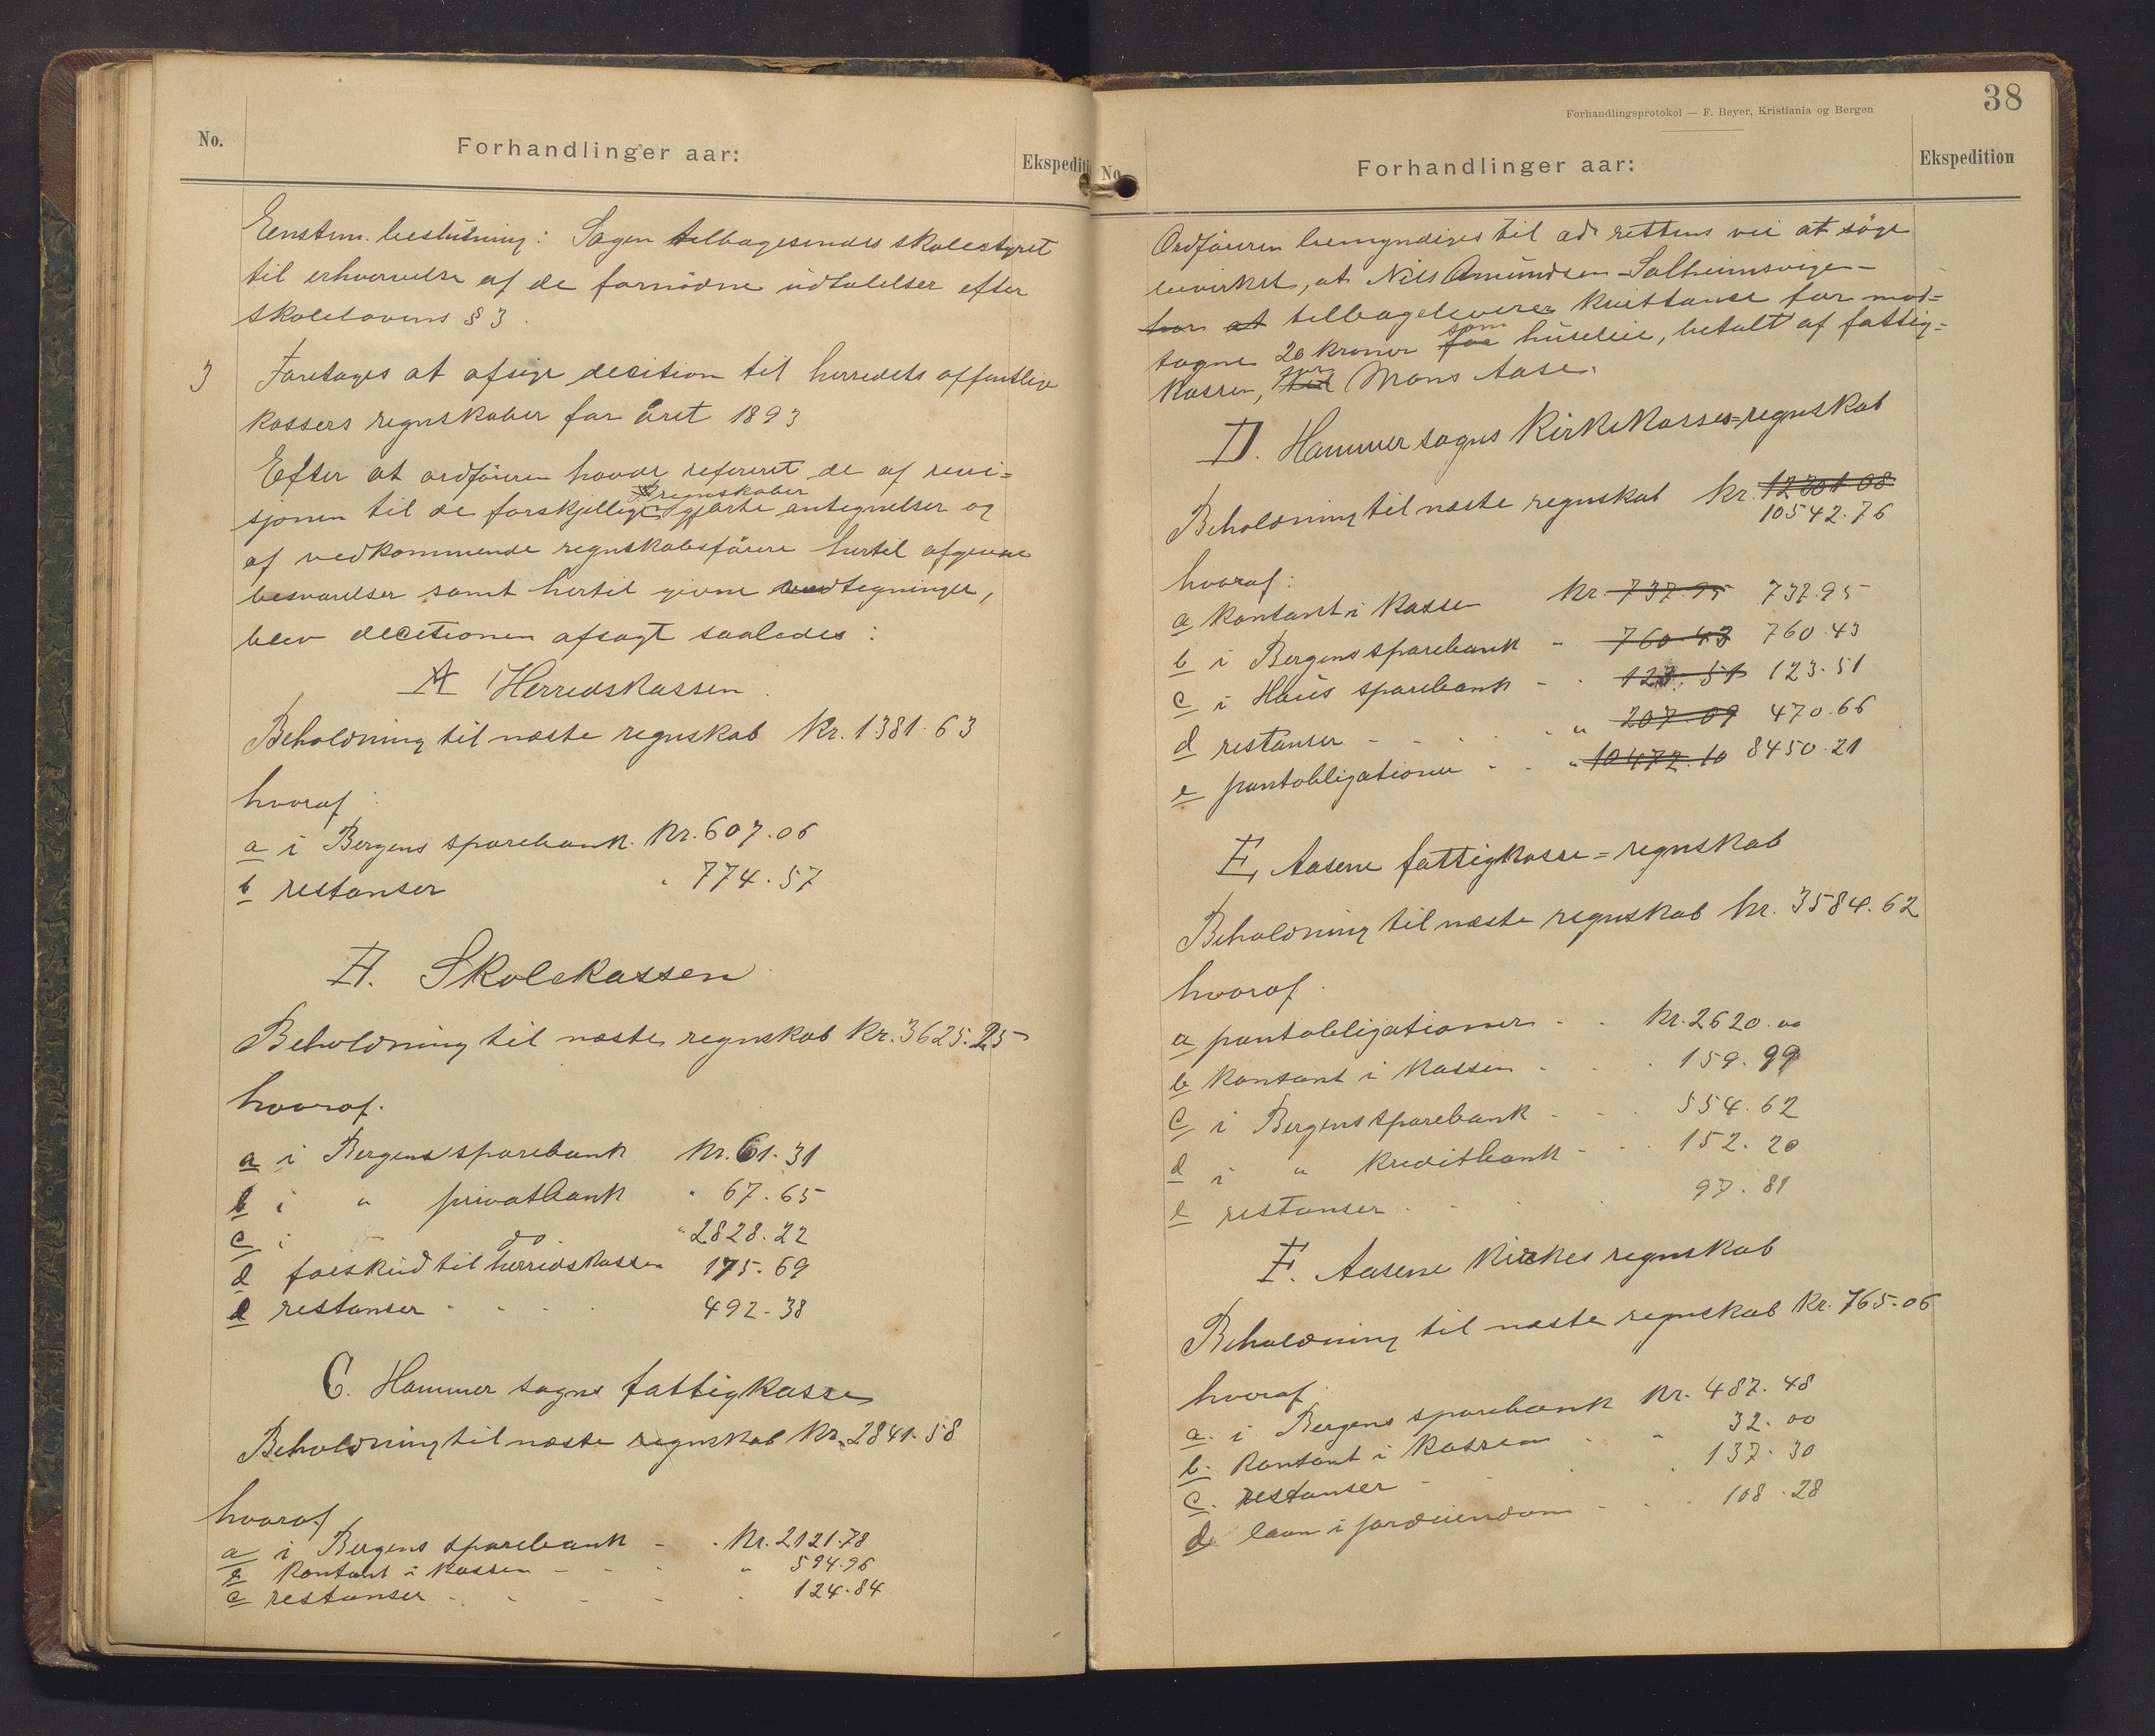 No.
Forhandlinger aar:
Ekspediti
Eenstem. beslutning: Sagen tilbagesendes skolestyret
til erhvervelse af de fornødne udtalelser efter
skolelovens § 3.
3 Foretages at afsige decition til herredets offentlige
kassers regnskaber for året 1893
Efter at ordføreren havde refereret de af revi=
sjonen til de forskjellige regnskaber gjorte antegnelser og
af vedkommende regnskabsførere hertil afgivne
besvarelser samt hertil givne tegninger,
blev decitionen afsagt saaledes:
A Herredskassen.
Beholdning til næste regnskab Kr. 1381.63
hvoraf:
a i Bergens sparebank. Kr. 607.06
b restanser " 774.57
B. Skolekassen
Beholdning til næste regnskab Kr. 3625.25
hvoraf.
a i Bergens sparebank Kr. 61.31
b i " privatbank " 67.65
c i do " 2828.22
d forskud til herredskassen 175.69
e restanser - - - - 492.38
C. Hammer sogns fattigkasse
Beholdning til næste regnskab Kr. 2841.58
hvoraf
a i Bergens sparebank - - Kr. 2121.78
b kontant i kassen - - - " 594.96
c restanser - - - - - 124.84
38
Forhandlingsprotokol — F. Beyer, Kristiania og Bergen
No.
Forhandlinger aar:
Ekspedition
Ordføreren bemyndiges til ad rettens vei at søge
bevirket, at Nils Amundsen-Solheimsvigen-
at tilbageleverer kvittanse for mod=
tagne 20 kroner for som husleie, betalt af fattig-
kassen, til for Mons Aase.
D. Hammer sogns Kirkekasses=regnskab
Beholdning til næste regnskab Kr. 12301.08
10542.76
hvoraf:
a kontant i kassen Kr. 737.95 737.95
b i Bergens sparebank - 760.43 760.43
c i Haus sparebank - - 123.51 123.51
d restanser - - - - " 207.09 470.66
e pantobligationer - - " 10472.10 8450.21
E. Aasene fattigkasse=regnskab
Beholdning til næste regnskab kr. 3584.62
hvoraf.
a pantobligationer - - Kr. 2620.00
b kontant i kassen - - - 159.99
c i Bergens sparebank - - - 554.62
d i " kreditbank - - - 152.20
e restanser - - - 97.81
F. Aasene Kirkes regnskab
Beholdning til næste regnskab Kr. 765.06
hvoraf:
a. i Bergens sparebank Kr. 487.48
b. kontant i kassen - - 32.00
c. restanser - - - 137.30
d. laan i jordeiendom - - - 108.28